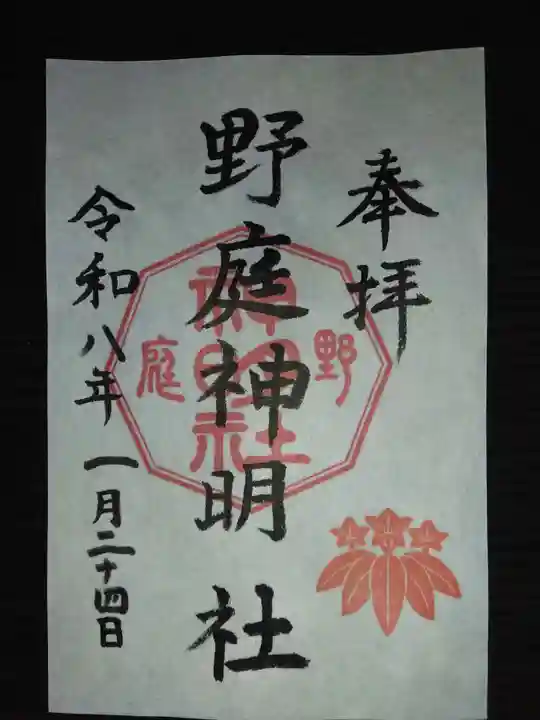 奉拝
野庭神明社
令和八年一月二十四日
野
神明社
庭